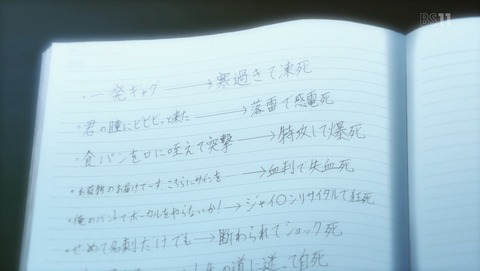 BS11
・一発ギャグ → 寒過ぎて凍死
・君の瞳にビビビッと来た → 落雷で感電死
・食パンを口に咥えて突撃 → 特攻して爆死
・お荷物のお届けでーす。こちらにサインを → 血判で失血死
・俺のバンドでボーカルをやらないか! → ジャイ○ンリサイタルで狂死
・せめて名刺だけでも → 断わられてショック死
の道に迷って自死